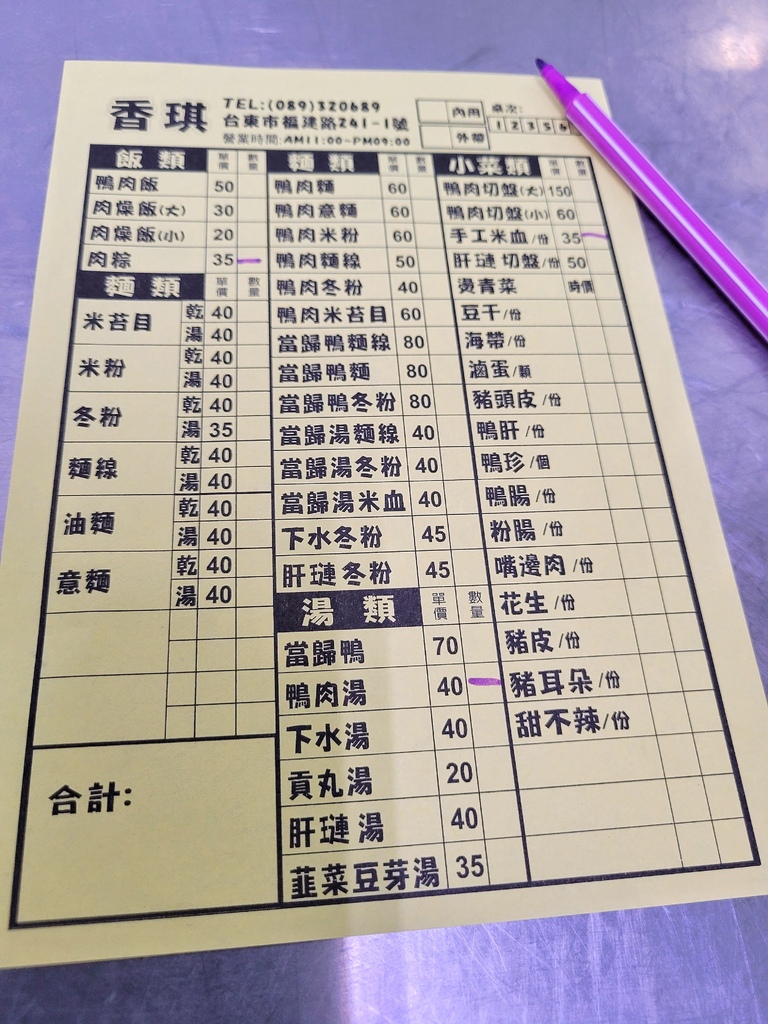 香琪
TEL:(089)320689
台東市福建路241-1號
營業時間:AM11:00~PM09:00
內用
外帶
桌次:
1 2 3 5 6
飯類 單價 數量
鴨肉飯 50
肉燥飯(大) 30
肉燥飯(小) 20
肉粽 35 一
麵類 單價 數量
米苔目 乾 40
湯 40
米粉 乾 40
湯 40
冬粉 乾 40
湯 35
麵線 乾 40
湯 40
油麵 乾 40
湯 40
意麵 乾 40
湯 40
合計:
麵類 單價 數量
鴨肉麵 60
鴨肉意麵 60
鴨肉米粉 60
鴨肉麵線 50
鴨肉冬粉 40
鴨肉米苔目 60
當歸鴨麵線 80
當歸鴨麵 80
當歸鴨冬粉 80
當歸湯麵線 40
當歸湯冬粉 40
當歸湯米血 40
下水冬粉 45
肝璉冬粉 45
湯類 單價 數量
當歸鴨 70
鴨肉湯 40 一
下水湯 40
貢丸湯 20
肝璉湯 40
韮菜豆芽湯 35
小菜類 單價 數量
鴨肉切盤(大) 150
鴨肉切盤(小) 60
手工米血/份 35 一
肝璉切盤/份 50
燙青菜 時價
豆干/份
海帶/份
滷蛋/顆
豬頭皮/份
鴨肝/份
鴨珍/個
鴨腸/份
粉腸/份
嘴邊肉/份
花生/份
豬皮/份
豬耳朵/份
甜不辣/份